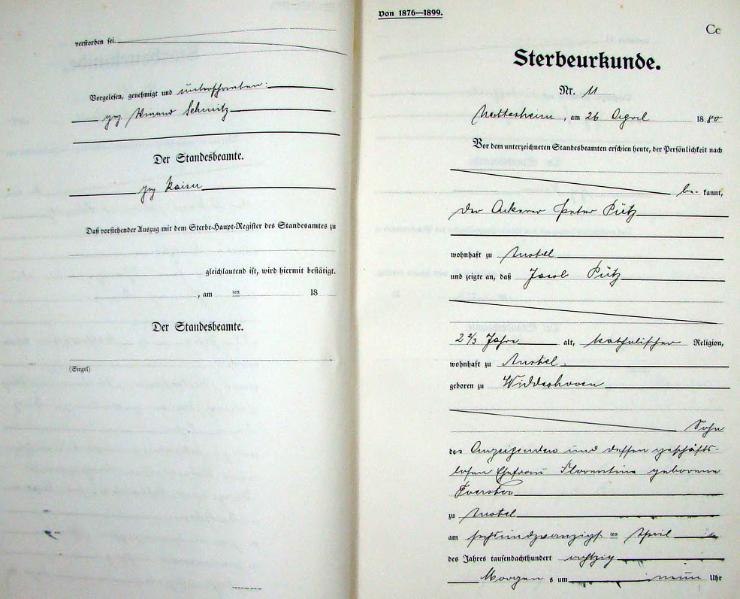 verstorben sei.
Vorgelesen, genehmigt und unterschrieben:
gez. Schmitz
Der Standesbeamte.
gez. Kaiser
Daß vorstehender Auszug mit dem Sterbe-Haupt-Register des Standesamtes zu
gleichlautend ist, wird hiermit bestätigt.
, am ten 18
Der Standesbeamte.
(Siegel)
Von 1876—1899.
Cc
Sterbeurkunde.
Nr. 11
Nettesheim, am 26 April 1880
Vor dem unterzeichneten Standesbeamten erschien heute, der Persönlichkeit nach
be- kannt,
der Ackerer Peter Pütz
wohnhaft zu Anstel
und zeigte an, daß Jacob Pütz
2 2/3 Jahre alt, katholischer Religion,
wohnhaft zu Anstel
geboren zu Widdeshoven
Sohn
des Anzeigenden und dessen geschäfts-
losen Ehefrau Florentine geborene
zu Anstel
am sechsundzwanzigsten April
des Jahres tausendachthundert achtzig
Morgens um neun Uhr